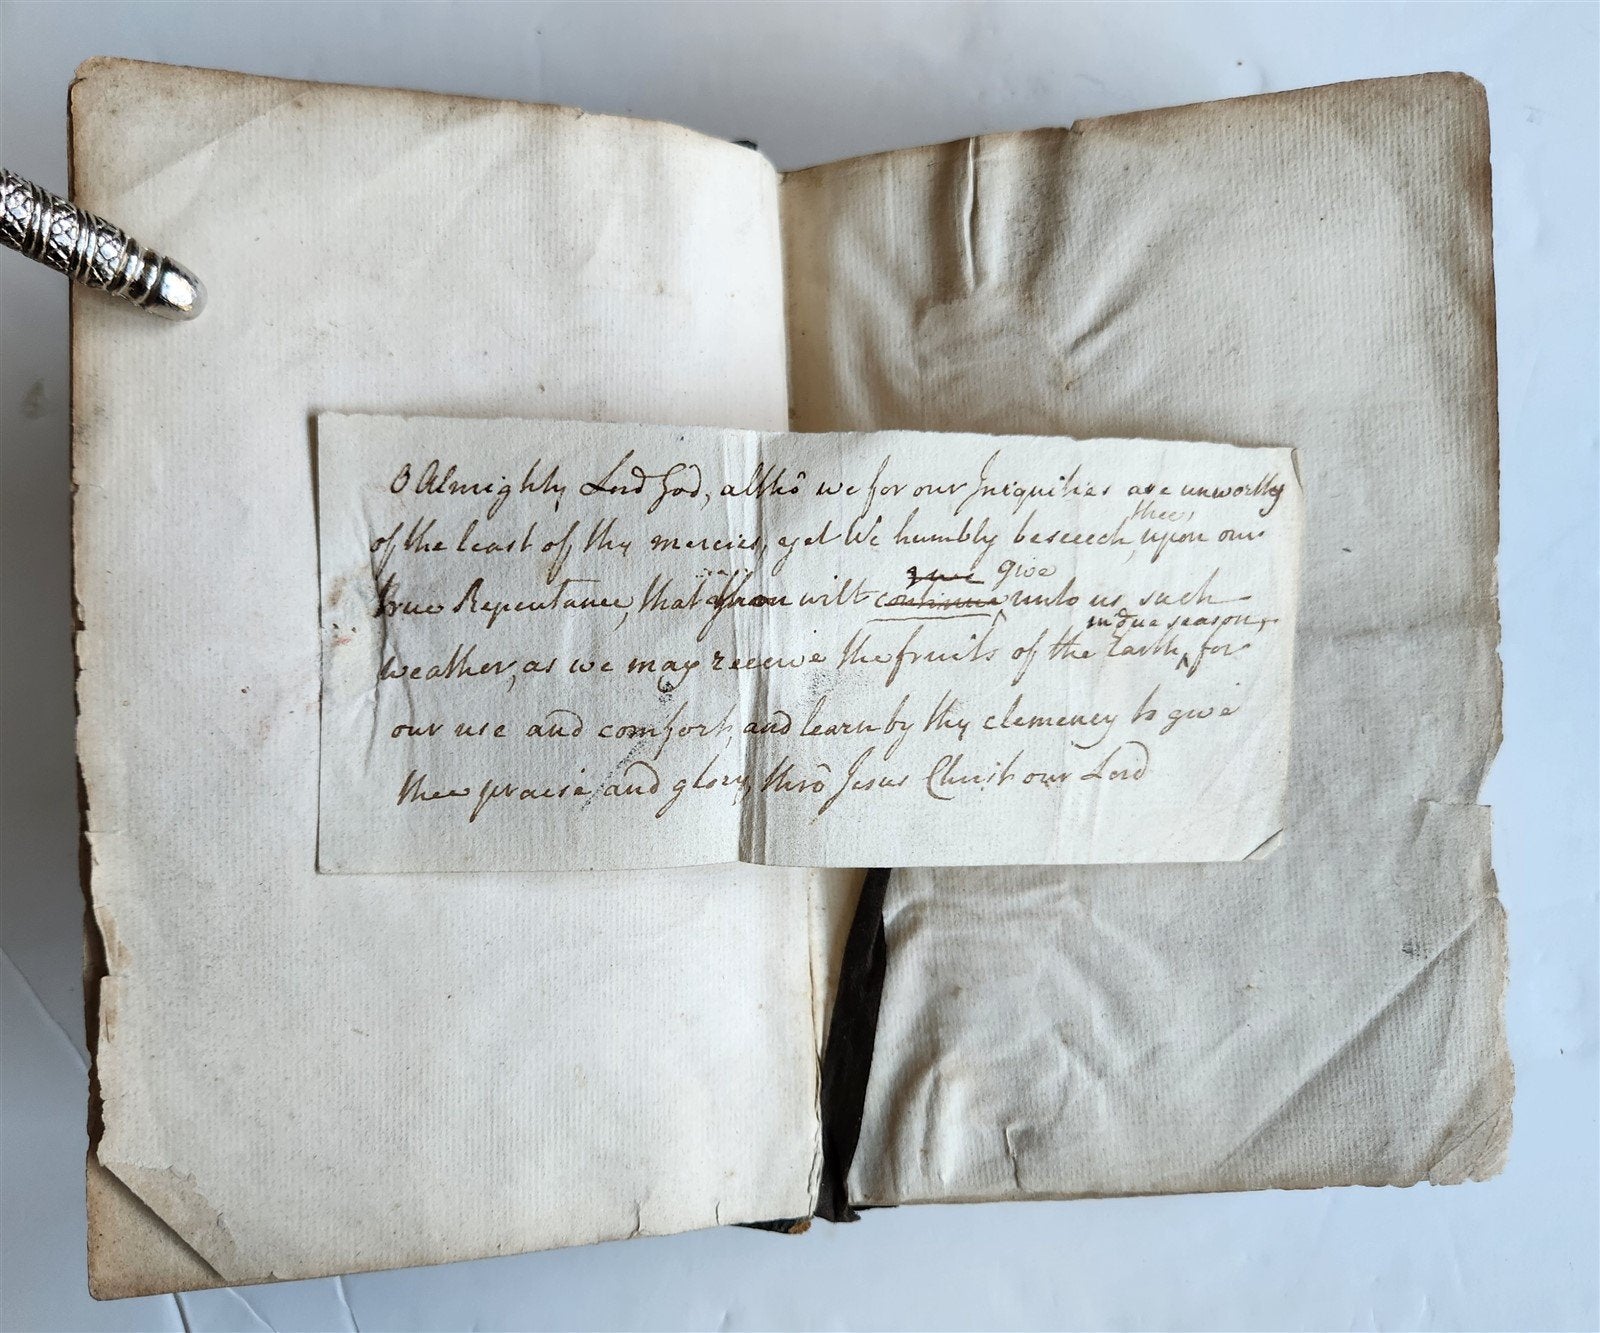 O Almighty Lord God, altho we for our Iniquities are unworthy
of the least of thy mercies, yet We humbly beseech thee, upon our
true Repentance, that thou wilt continue give unto us such
weather, as we may receive the fruits of the Earth in due season, for
our use and comfort, and learn by thy clemency to give
thee praise and glory, thro Jesus Christ our Lord